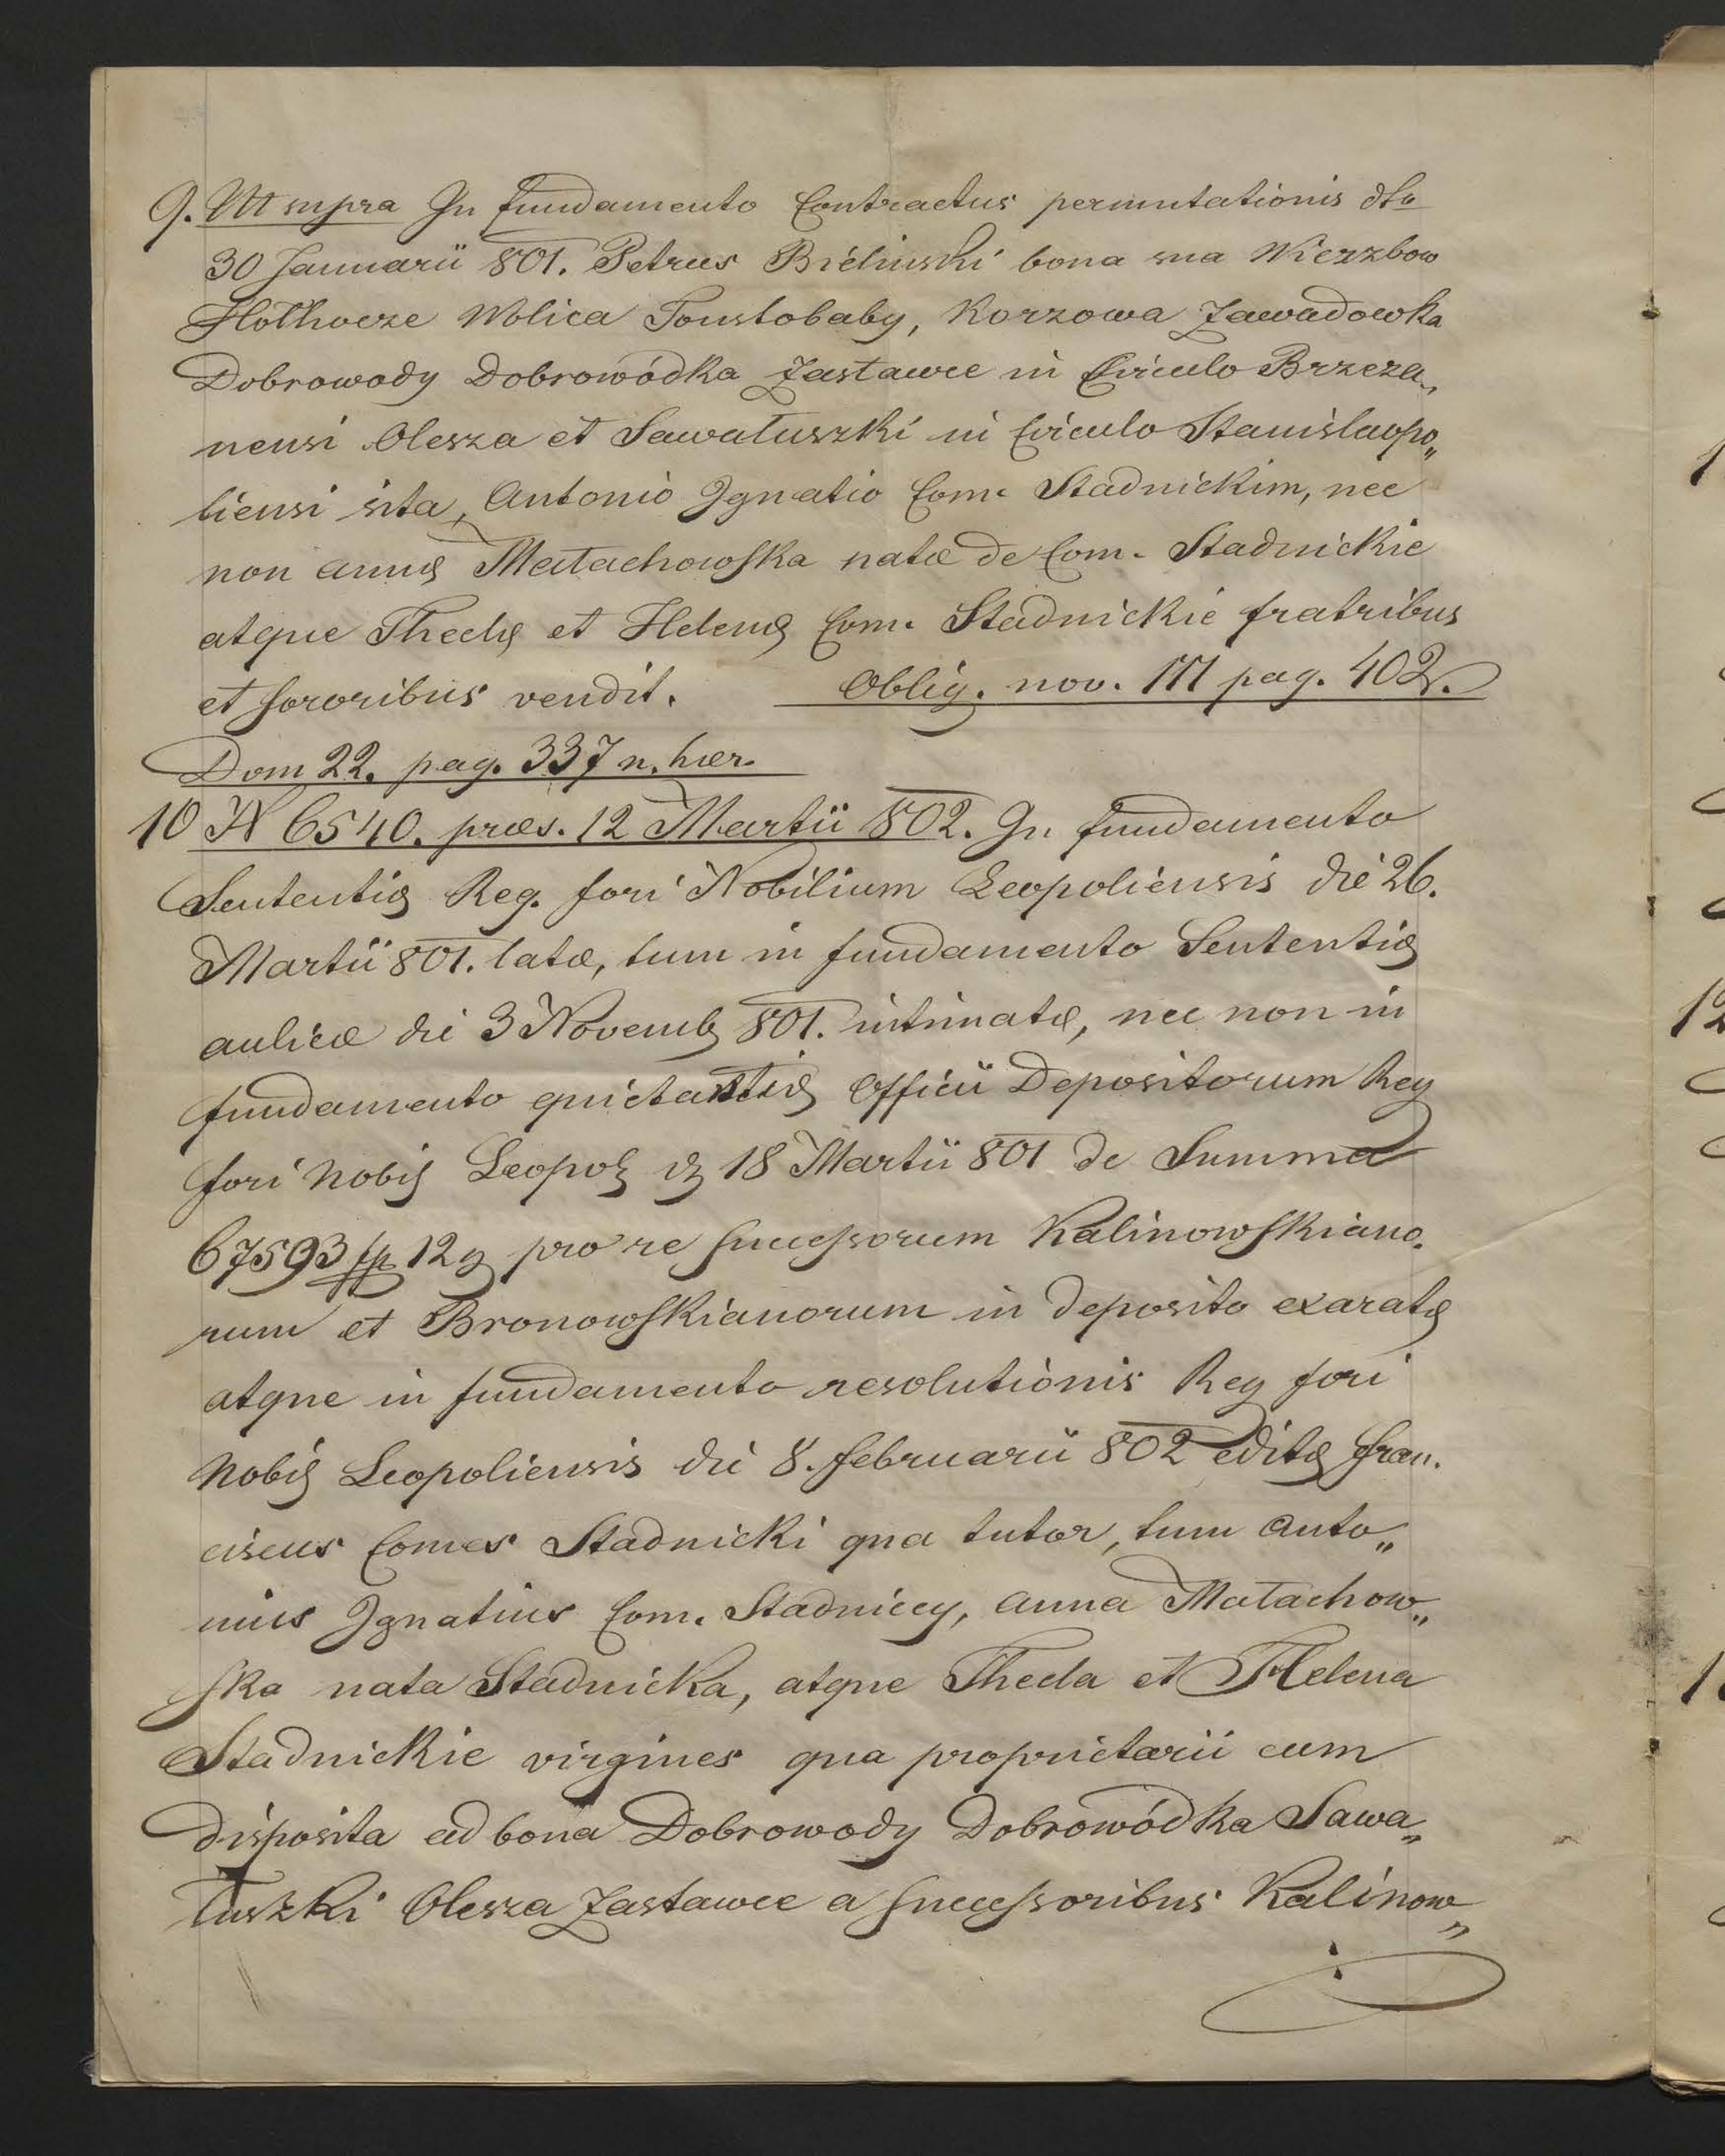 9. Ut supra In fundamento Contractus permutationis dto
30 Januarii 801. Petrus Bielinski bona sua Wierzbow
Hołhocze Wolica Toustobaby, Korzowa Zawadowka
Dobrowody Dobrowódka Zastawce in Circulo Brzeza„
nensi Olesza et Sawałuszki in Circulo Stanislaopo„
liensi sita, Antonio Ignatio Com. Stadnickim, nec
non annæ Małachowska natæ de Com. Stadnickie
atque Theclæ et Helenæ Com. Stadnickie fratribus
et sororibus vendit. Oblig. nov. 111 pag. 402.
Dom 22. pag. 337 n. hær.
10 N 6540. præs. 12 Martii 802. In fundamento
Sententiæ Reg. fori Nobilium Leopoliensis die 26.
Martii 801. latæ, tum in fundamento Sententiæ
aulicæ die 3 Novemb 801. intimatæ, nec non in
fundamento quietantiæ Officii Depositorum Reg
fori Nobil Leopol 18 Martii 801 de Summa
67593 12 g pro re successorum Kalinowskiano.
rum et Bronowskianorum in deposito exaratæ
atque in fundamento resolutionis Reg fori
Nobil Leopoliensis die 8. februarii 802 editæ fran.
ciscus Comes Stadnicki qua tutor, tum Anto„
nius Ignatius Com. Stadniccy, anna Małachow„
ska nata Stadnicka, atque Thecla et Helena
Stadnickie virgines qua proprietarii cum
disposita ad bona Dobrowody Dobrowódka Sawa„
łuszki Olesza Zastawce a successoribus Kalinow„